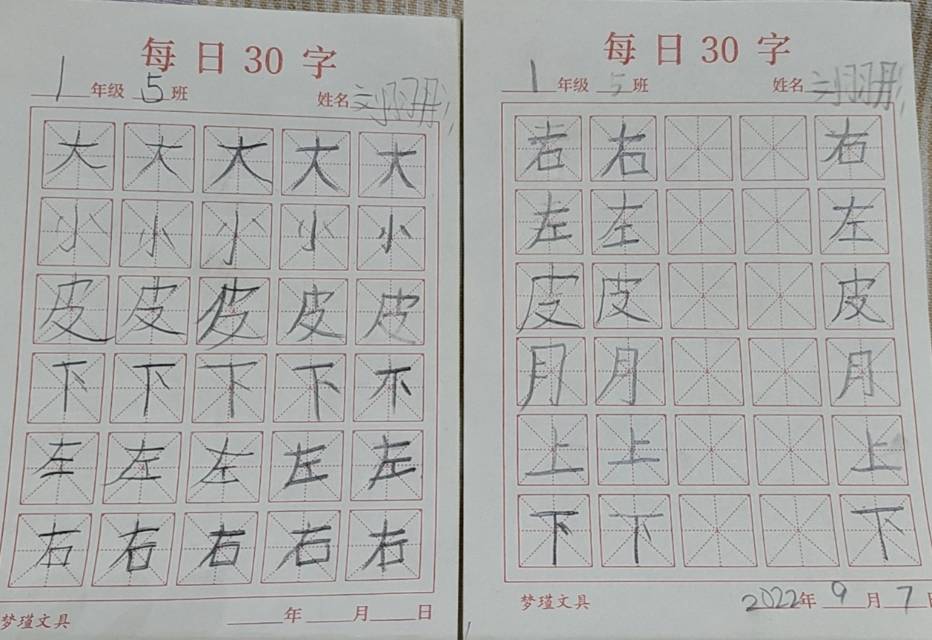 每日30字
1年级 5班 姓名 刘羽彤
大 大 大 大 大
小 小 小 小 小
皮 皮 皮 皮 皮
下 下 下 下 不
左 左 左 左 左
右 右 右 右 右
梦瑾文具 年 月 日
每日30字
1年级 5班 姓名 刘羽彤
右 右 右
左 左 左
皮 皮 皮
月 月 月
上 上 上
下 下 下
梦瑾文具 2022年 9月 7日